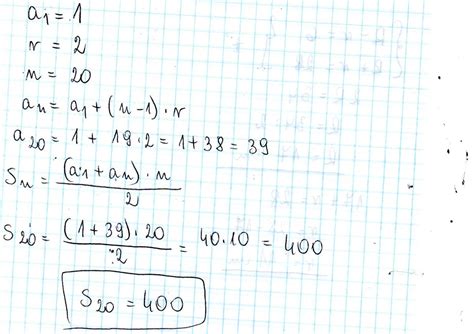 a₁ = 1
r = 2
n = 20
aₙ = a₁ + (n-1) · r
a₂₀ = 1 + 19 · 2 = 1 + 38 = 39
Sₙ = (a₁ + aₙ) · n / 2
S₂₀ = (1 + 39) · 20 / 2 = 40 · 10 = 400
S₂₀ = 400